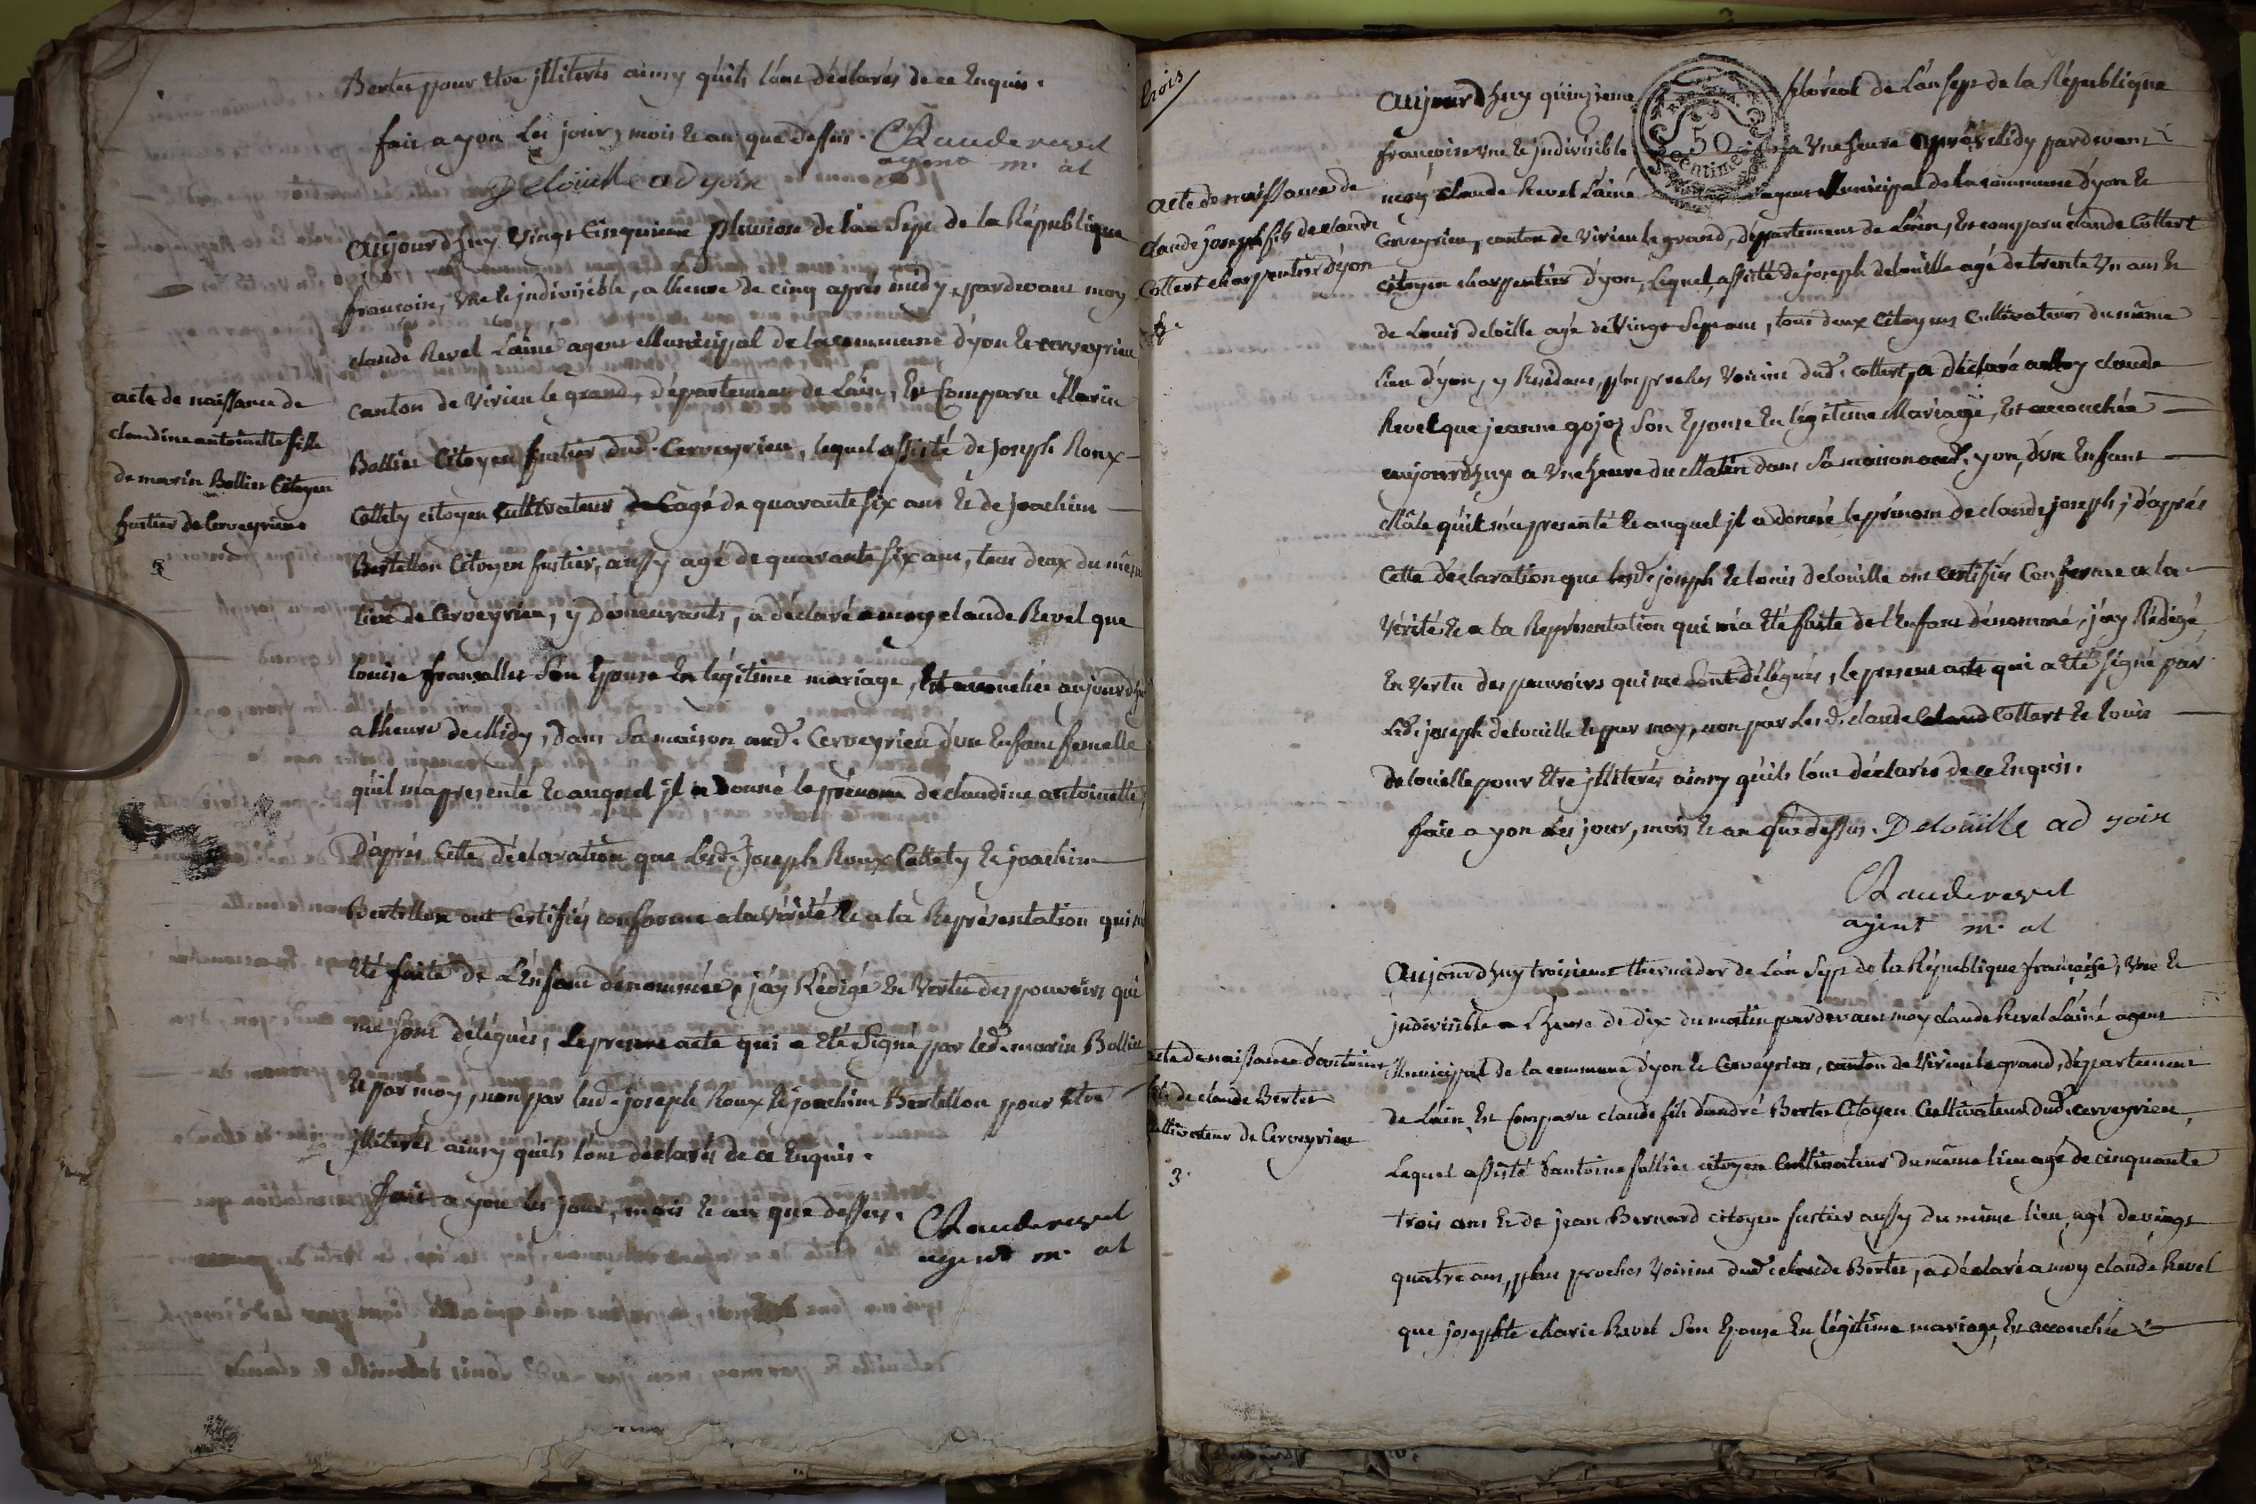 Berter pour etre jlliterés ainsy quils lont déclarés de ce Enquis.
fait a yon Les jour, mois Et an que dessus. Claude revel
agent m. al
Deloüille adjoin
Aujourdhuy Vingt Cinquieme pluviose de lan Sept de la République
francoise, Une et jndivisible, a lheure de cinq après midy, pardevant moy
claude Revel Lainé agent Municipal de la commune dyon Et cerveyrieu
acte de naissance de
claudine antoinette fille
de marin Bollier Citoyen
fustier de Cerveyrieux
2
canton de Virieu le grand, département de Lain, Est Comparu Marin
Bollier Citoyen fustier dud. Cerveyrieu, lequel assisté de Joseph Roux
Collety citoyen Cultivateur agé de quarante six ans Et de Joachim
Bertellon Citoyen fustier, aussy agé de quarante six ans, tous deux du même
lieu de Cerveyrieu, y Demeurants, a déclaré a moy claude Revel que
louise françalles Son Epouse En légitime mariage, Est accouchée aujourdhuy
a lheure de Midy, dans Sa maison aud. Cerveyrieu dun Enfant femelle
quil ma presenté Et auquel jl a Donné le prénom de claudine antoinette,
Daprès Cette déclaration que Lesd. Joseph Roux Collety Et joachim
Bertellon ont Certifiés conforme a la Vérité Et a la Représentation qui ma
Eté faite de LEnfant dénommée, jay Rédigé En Vertu des pouvoirs qui
me sont délégués, le present acte qui a Eté Signé par led. marin Bollier
Et par moy, non par lesd. joseph Roux Et joachim Bertellon pour Etre
jlliterés ainsy quils lont déclarés de ce Enquis.
fait a yon les jour, mois Et an que dessus. Claude revel
agent m. al
trois
Aujourdhuy quinzieme floréal de Lan Sept de la République
françoise une Et jndivisible a Une heure après Midy pardevant
50 centimes
moy claude Revel Lainé agent Municipal de la commune dyon Et
acte de naissance de
claude joseph fils de claude
Collert charpentier dyon
Cerveyrieu, canton de Virieu le grand, département de Lain, Est comparu claude Collert
citoyen charpentier dyon, Lequel, assisté de joseph delouille agé de trente Un ans Et
de Louis deloille agé de Vingt Sept ans, tous deux Citoyens Cultivateurs du même
lieu dyon, y Résidans, plus proches Voisins dud. Collert, a déclaré a moy claude
Revel que jeanne gojoz Son Epouse En légitime Mariage, Est accouchée
aujourdhuy a Une heure du Matin dans Sa maison aud. yon, dun Enfant
Mâle quil ma presenté Et auquel jl a donné le prénom de claude joseph ; daprès
Cette déclaration que lesd. joseph Et louis delouille ont certifiés Conforme a la
Vérité Et a la Représentation qui ma Eté faite de lEnfant dénommé, jay Rédigé,
En Vertu des pouvoirs qui me Sont délégués, le present acte qui a Eté signé par
Led. joseph delouille Et par moy, non par Lesd. claude Collert Et louis
delouille pour Etre jlliterés ainsy quils lont déclarés de ce Enquis.
fait a yon Les jour, mois Et an que dessus. Deloüille adjoin
Claude revel
agent m. al
Aujourdhuy troisieme thermidor de Lan Sept de la République françoise, Une Et
jndivisible a Lheure de dix du matin pardevant moy claude Revel Lainé agent
acte de naissance dantoine
fils de claude Berter
Cultivateur de Cerveyrieu
3.
Municipal de la commune dyon Et Cerveyrieu, canton de Virieu le grand, département
de Lain, Est Comparu claude fils dandré Berter Citoyen Cultivateur dud. cerveyrieu,
Lequel assisté dantoine follier citoyen Cultivateur du même lieu agé de cinquante
trois ans Et de jean Bernard citoyen fustier aussy du même lieu, agé de vingt
quatre ans, plus proches Voisins dud. claude Berter, a déclaré a moy claude Revel
que josephte Marie Revel Son Epouse En légitime mariage, Est accouchée